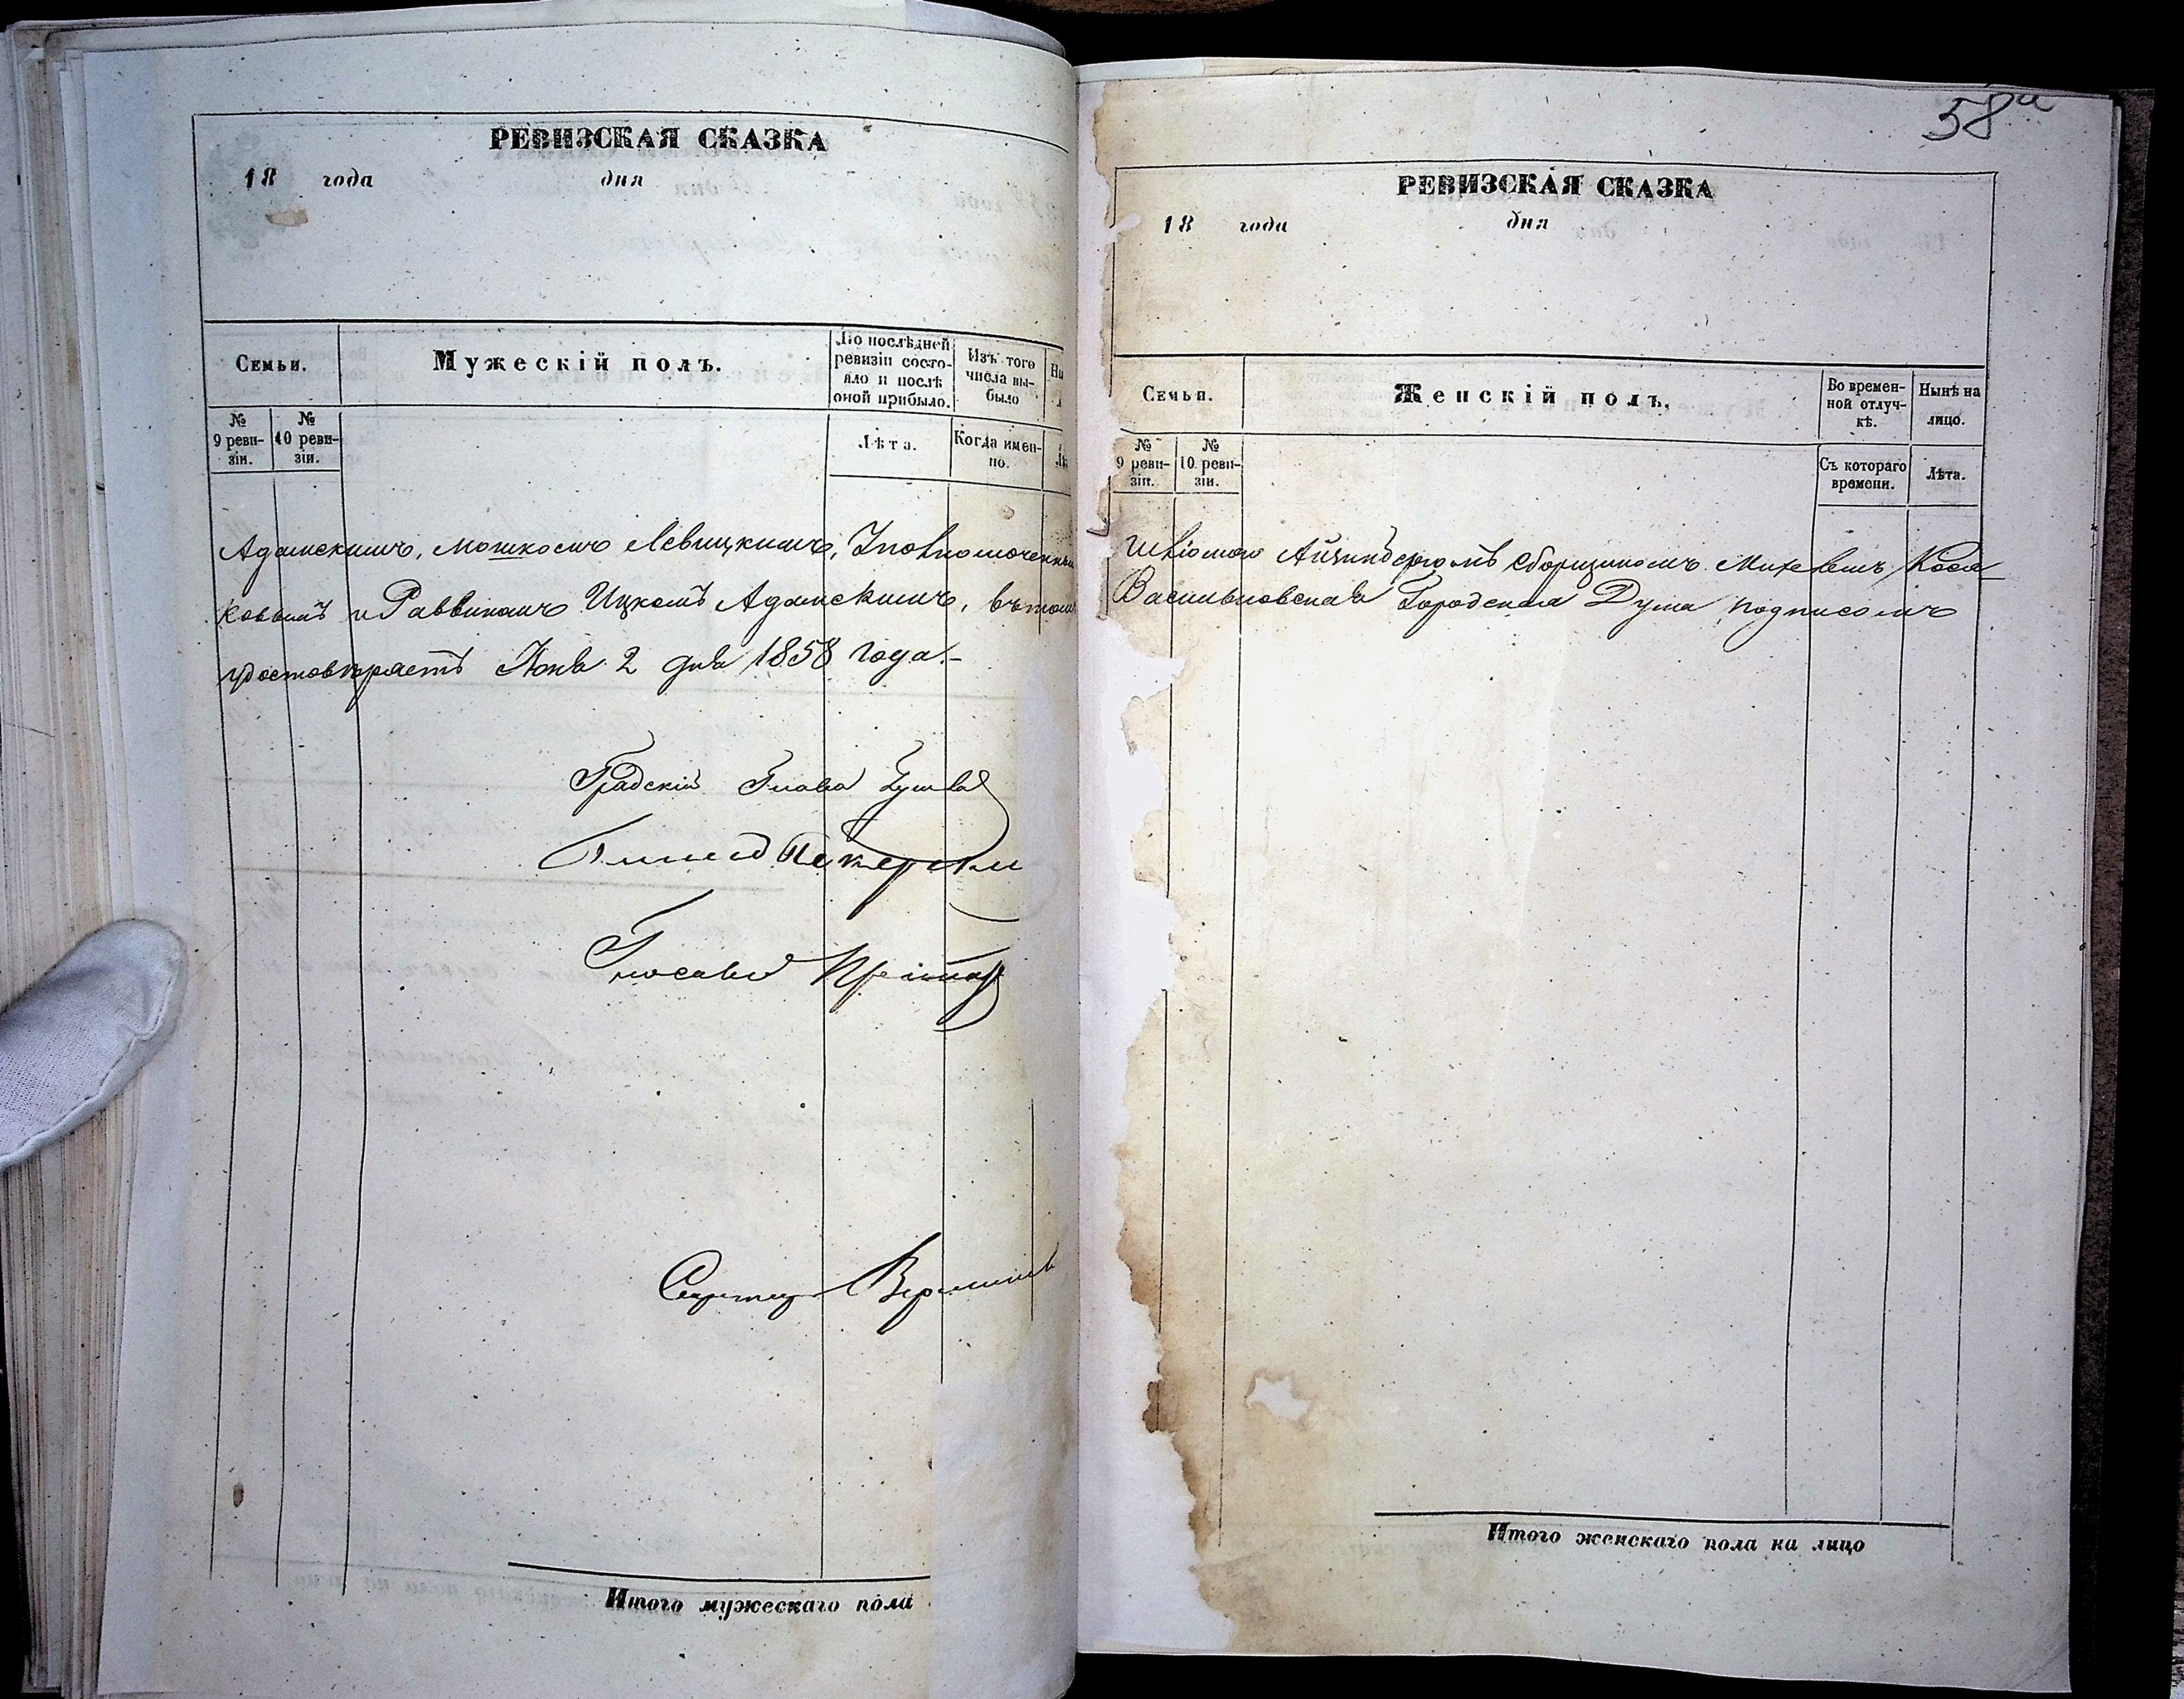 58а
РЕВИЗСКАЯ СКАЗКА
18 года дня
Семьи.
Мужескій полъ.
По послѣдней ревизіи состо-
яло и послѣ
оной прибыло.
Изъ того
числа вы-
было
№
9 реви-
зіи.
№
10 реви-
зіи.
Лѣта.
Когда имен-
но.
Адамскимъ, Мошкомъ Левицкимъ, Уполномоченны
ковымъ и Раввиномъ Ицкомъ Адамскимъ, въ томъ
удостовѣряетъ Юня 2 дня 1858 года.-
Градскій Глава
Гласный
Секретарь
Итого мужескаго пола
РЕВИЗСКАЯ СКАЗКА
18 года дня
Семьи.
Женскій полъ.
Во времен-
ной отлуч-
кѣ.
Нынѣ на
лицо.
№
9 реви-
зіи.
№
10 реви-
зіи.
Съ котораго
времени.
Лѣта.
Сборщикомъ
Васильковская Городская Дума подписомъ
Итого женскаго пола на лицо